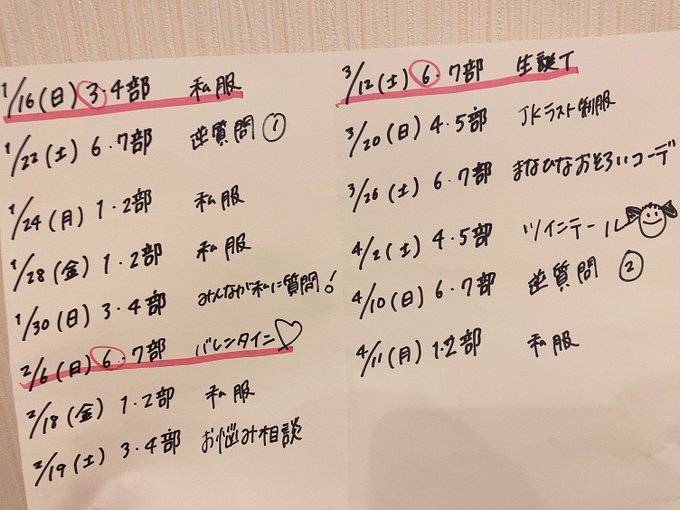 1/16(日) 3・4部 私服
1/22(土) 6・7部 逆質問①
1/24(月) 1・2部 私服
1/28(金) 1・2部 私服
1/30(日) 3・4部 みんなが私に質問!
2/6(月) 6・7部 バレンタイン♡
2/18(金) 1・2部 私服
2/19(土) 3・4部 お悩み相談
3/12(土) 6・7部 生誕T
3/20(日) 4・5部 JKラスト制服
3/26(土) 6・7部 まなひなおそろいコーデ
4/2(土) 4・5部 ツインテール
4/10(日) 6・7部 逆質問②
4/11(月) 1・2部 私服